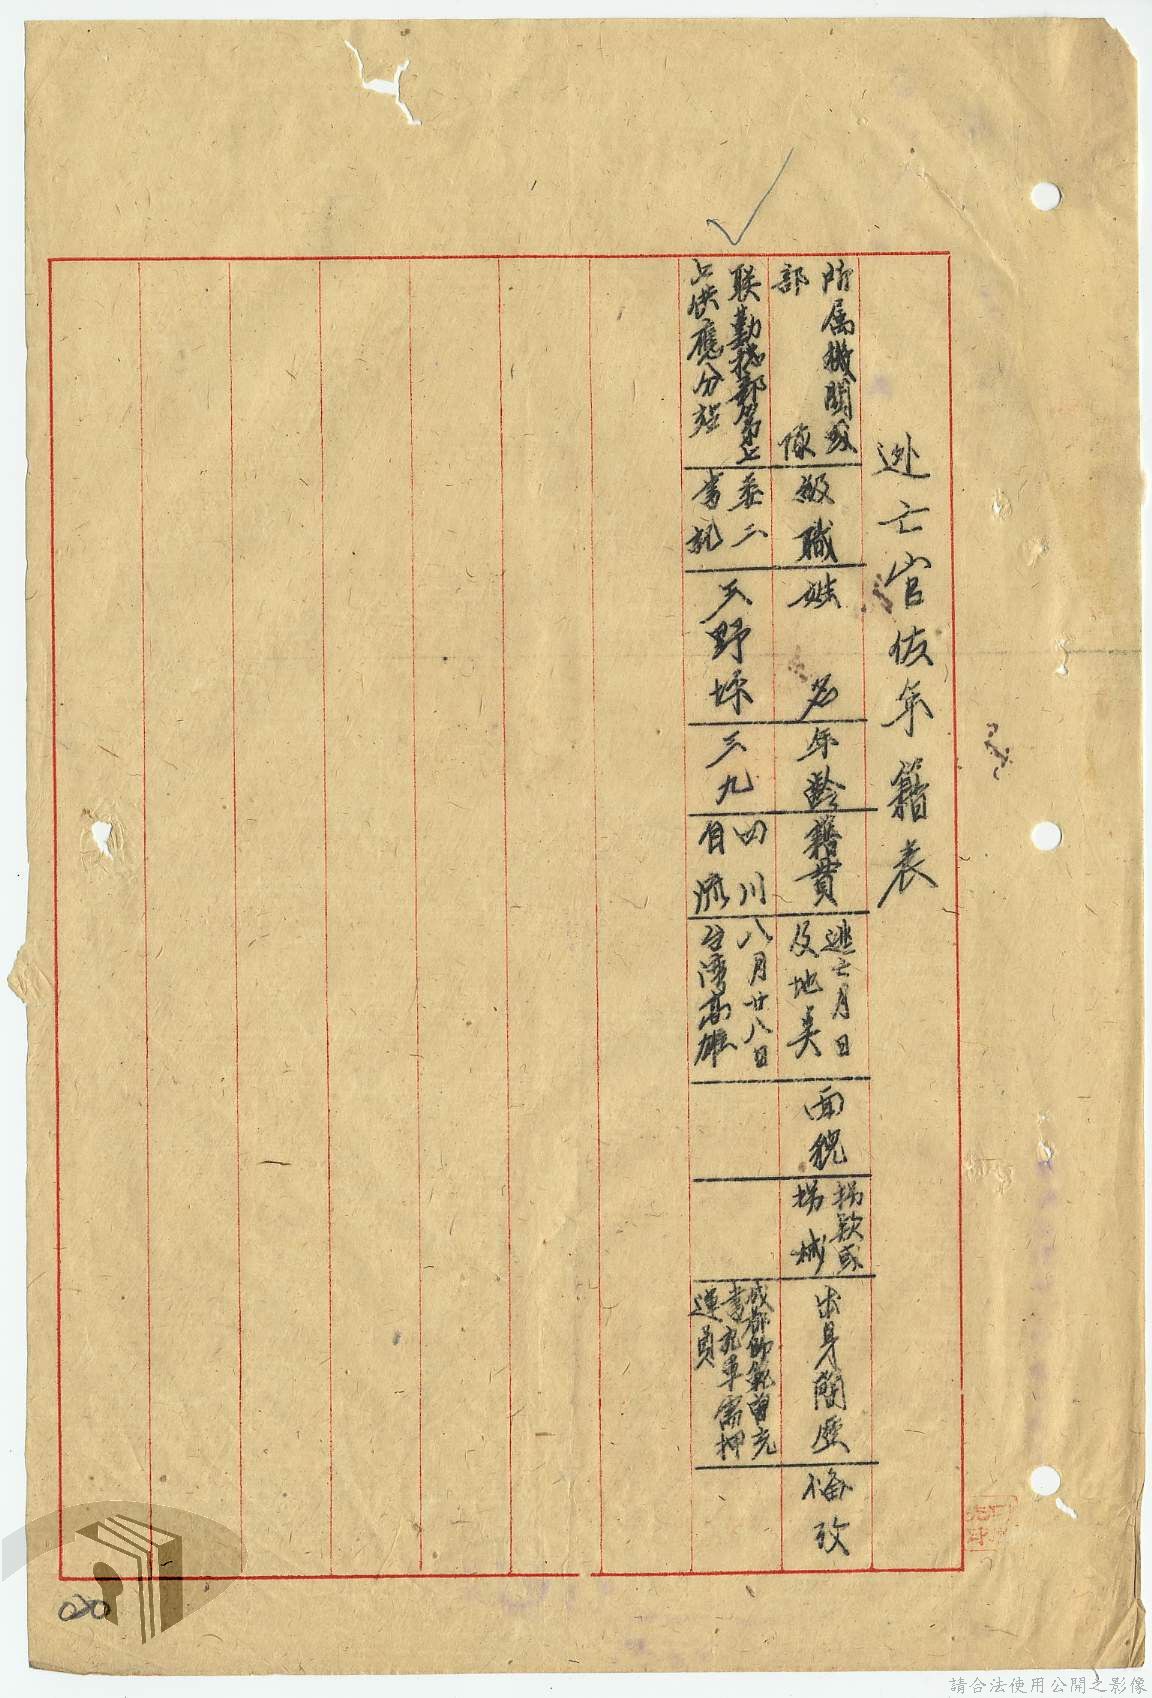 逃亡官佐年籍表
所屬機關或
部隊
級職
姓名
年齡
籍貫
逃亡月日
及地点
面貌
拐款或
拐械
出身簡歷
備考
联勤總部第七
上供應分站
委二
書記
王野坪
三九
四川
自流
八月廿八日
台灣高雄
成都師範曾充
書記軍需押
運員
020
請合法使用公開之影像